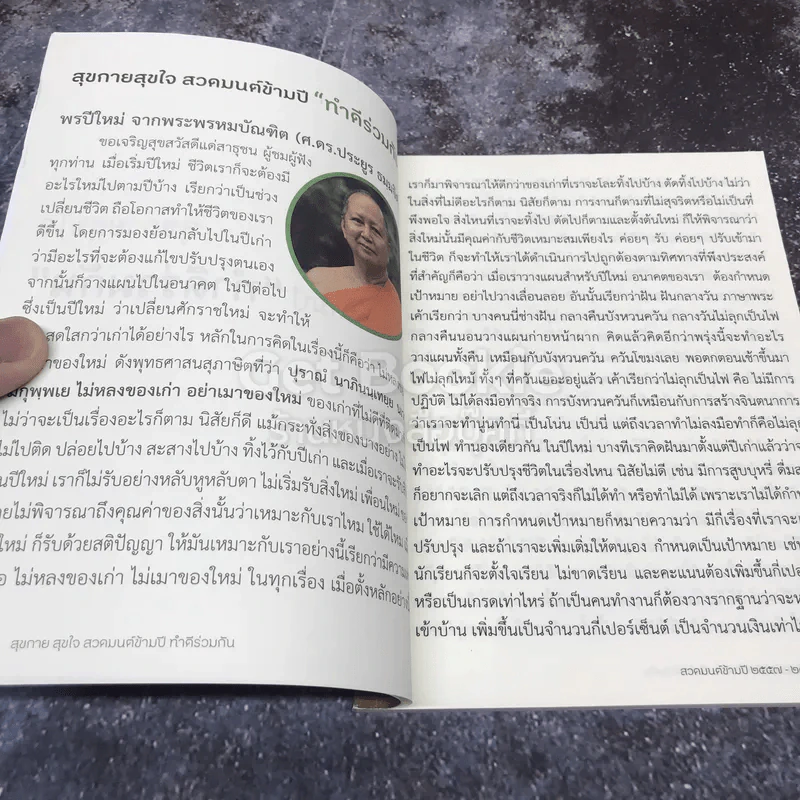 สุขกายสุขใจ สวดมนต์ข้ามปี "ทำดีร่วมกั
พรปีใหม่ จากพระพรหมบัณฑิต (ศ.ดร.ประยูร
ขอเจริญสุขสวัสดีแด่สาธุชน ผู้ชมผู้ฟัง
ทุกท่าน เมื่อเริ่มปีใหม่ ชีวิตเราก็จะต้องมี
อะไรใหม่ไปตามปีบ้าง เรียกว่าเป็นช่วง
เปลี่ยนชีวิต ถือโอกาสทำให้ชีวิตของเรา
ดีขึ้น โดยการมองย้อนกลับไปในปีเก่า
ว่ามีอะไรที่จะต้องแก้ไขปรับปรุงตนเอง
จากนั้นก็วางแผนไปในอนาคต ในปีต่อไป
ซึ่งเป็นปีใหม่ ว่าเปลี่ยนศักราชใหม่ จะทำให้
สดใสกว่าเก่าได้อย่างไร หลักในการคิดในเรื่องนี้ก็คือว่า
าของใหม่ ดังพุทธศาสนสุภาษิตที่ว่า ปุราณํ นาภินนฺเทยฺย
ไม่หลงของเก่า อย่าเมาของใหม่ ของเก่าที่ไม่ดีที่
ไม่ว่าจะเป็นเรื่องอะไรก็ตาม นิสัยก็ดี แม้กระทั่งสิ่งของบางอย่าง
ไม่ไปติด ปล่อยไปบ้าง สะสางไปบ้าง ทิ้งไว้กับปีเก่า และเมื่อเราจะรับ
นปีใหม่ เราก็ไม่รับอย่างหลับหูหลับตา ไม่เริ่มรับสิ่งใหม่ เพื่อนใหม่
ยไม่พิจารณาถึงคุณค่าของสิ่งนั้นว่าเหมาะกับเราไหม ใช้ได้ไหม
ใหม่ ก็รับด้วยสติปัญญา ให้มันเหมาะกับเราอย่างนี้เรียกว่ามีความ
อ ไม่หลงของเก่า ไม่เมาของใหม่ ในทุกเรื่อง เมื่อตั้งหลักอย่าง
สุขกาย สุขใจ สวดมนต์ข้ามปี ทำดีร่วมกัน
เราก็มาพิจารณาให้ดีกว่าของเก่าที่เราจะโละทิ้งไปบ้าง ตัดทิ้งไปบ้าง ไม่ว่า
ในสิ่งที่ไม่ดีอะไรก็ตาม นิสัยก็ตาม การงานก็ตามที่ไม่สุจริตหรือไม่เป็นที่
พึงพอใจ สิ่งไหนที่เราจะทิ้งไป ตัดไปก็ตามและตั้งต้นใหม่ ก็ให้พิจารณาว่า
สิ่งใหม่นั้นมีคุณค่ากับชีวิตเหมาะสมเพียงไร ค่อยๆ รับ ค่อยๆ ปรับเข้ามา
ในชีวิต ก็จะทำให้เราได้ดำเนินการไปถูกต้องตามทิศทางที่พึงประสงค์
ที่สำคัญก็คือว่า เมื่อเราวางแผนสำหรับปีใหม่ อนาคตของเรา ต้องกำหนด
เป้าหมาย อย่าไปวางเลื่อนลอย อันนั้นเรียกว่าฝัน ฝันกลางวัน ภาษาพระ
เค้าเรียกว่า บางคนนี่ช่างฝัน กลางคืนบังหวนควัน กลางวันไม่ลุกเป็นไฟ
กลางคืนนอนวางแผนก่ายหน้าผาก คิดแล้วคิดอีกว่าพรุ่งนี้จะทำอะไร
วางแผนทั้งคืน เหมือนกับบังหวนควัน ควันโขมงเลย พอตกตอนเช้าขึ้นมา
ไฟไม่ลุกไหม้ ทั้งๆ ที่ควันเยอะอยู่แล้ว เค้าเรียกว่าไม่ลุกเป็นไฟ คือ ไม่มีการ
ปฏิบัติ ไม่ได้ลงมือทำจริง การบังหวนควันก็เหมือนกับการสร้างจินตนาการ
ว่าเราจะทำนู่นทำนี่ เป็นโน่น เป็นนี่ แต่ถึงเวลาทำไม่ลงมือทำก็คือไม่ลุก
เป็นไฟ ทำนองเดียวกัน ในปีใหม่ บางทีเราคิดฝันมาตั้งแต่ปีเก่าแล้วว่าจะ
ทำอะไรจะปรับปรุงชีวิตในเรื่องไหน นิสัยไม่ดี เช่น มีการสูบบุหรี่ ดื่มส
ก็อยากจะเลิก แต่ถึงเวลาจริงก็ไม่ได้ทำ หรือทำไม่ได้ เพราะเราไม่ได้กำห
เป้าหมาย การกำหนดเป้าหมายก็หมายความว่า มีกี่เรื่องที่เราจะแ
ปรับปรุง และถ้าเราจะเพิ่มเติมให้ตนเอง กำหนดเป็นเป้าหมาย เช่
นักเรียนก็จะตั้งใจเรียน ไม่ขาดเรียน และคะแนนต้องเพิ่มขึ้นกี่เปอ
หรือเป็นเกรดเท่าไหร่ ถ้าเป็นคนทำงานก็ต้องวางรากฐานว่าจะห
เข้าบ้าน เพิ่มขึ้นเป็นจำนวนกี่เปอร์เซ็นต์ เป็นจำนวนเงินเท่าไ
สวดมนต์ข้ามปี ๒๕๕๗ - ๒